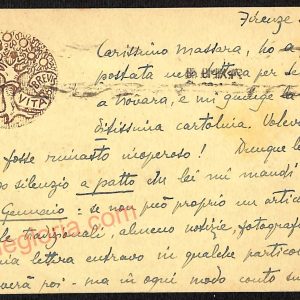 Firenze
Carissimo Massara, ho a
postata una lettera per
a Novara, e mi giunge la
ditissima cartolina. Volev
fosse rimasto inoperoso! Dunque le
silenzio a patto che lei mi mandi
Gennaio = se non può proprio un artic
almeno notizie, fotograf
lettera entravo in qualche partico
verà poi - ma in ogni modo conto su
BREVIS
VITA
egloria.com